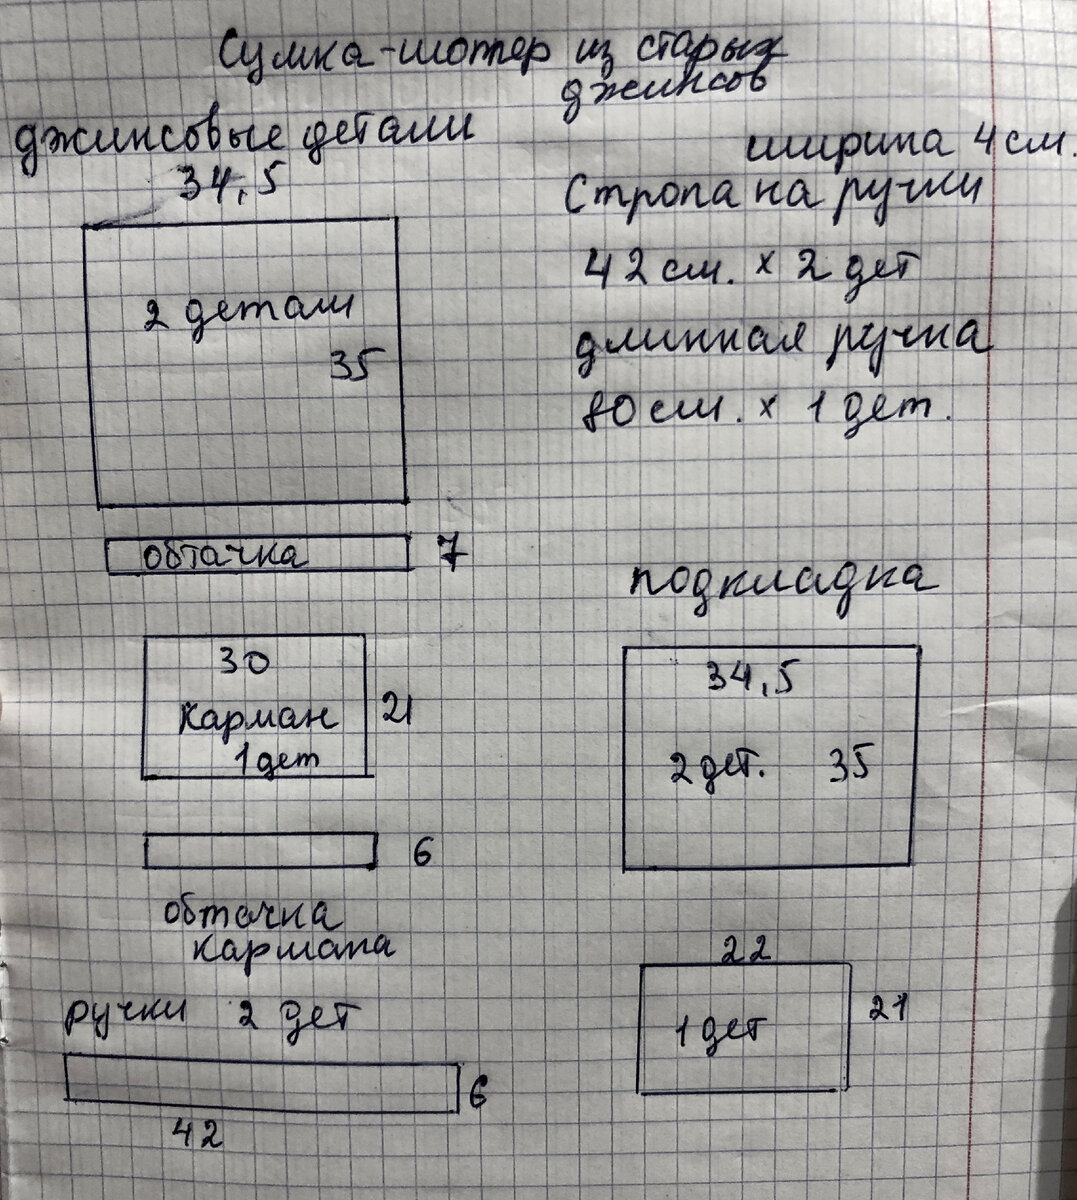 Сумка-шопер из старых
джинсов
джинсовые детали
34,5
2 детали
35
обтачка 7
30
карман 21
1 дет
6
обтачка
кармана
ручки 2 дет
6
42
ширина 4 см.
Стропа на ручки
42 см. x 2 дет
длинная ручка
80 см. x 1 дет.
подкладка
34,5
2 дет. 35
22
1 дет 21